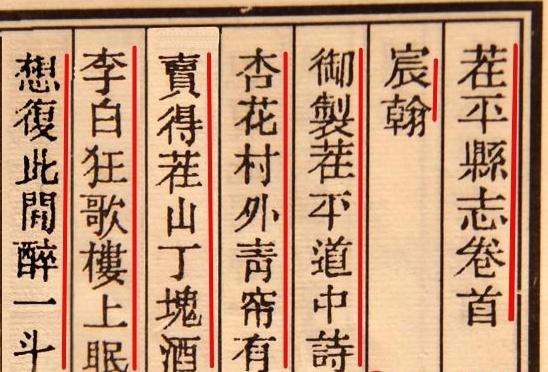 茬平縣志卷首
宸翰
御製茬平道中詩
杏花村外青帘有
賣得茬山丁塊酒
李白狂歌樓上眠
想復此間醉一斗